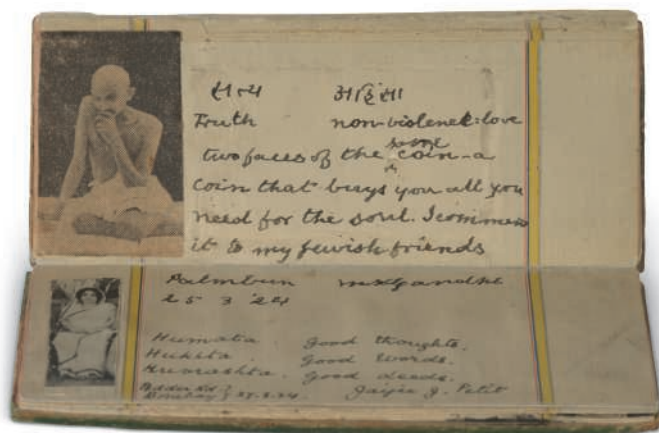 સત્ય અહિંસા
Truth non-violence: love
two faces of the same coin - a
coin that buys you all you
need for the soul. I commend
it to my Jewish friends
Palmbun mkgandhi
25 3 '24
Humata Good thoughts.
Hukhta Good Words.
Huvarashta. Good deeds.
Jaijee J. Petit
Bombay 27.3.24